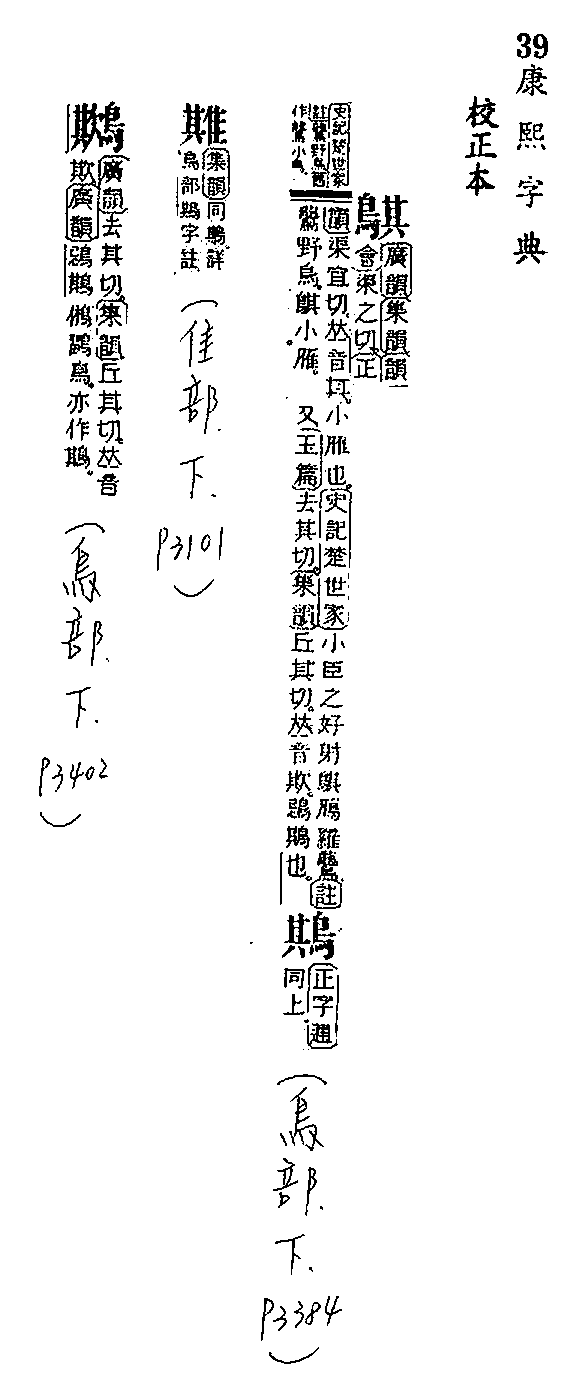 39康熙字典
校正本
䳢廣韻集韻韻
會渠之切正
韻渠宜切𠀤音其小雁也史記楚世家小臣之好射鶀鴈羅鸗註
鸗野鳥鶀小雁。又玉篇去其切集韻丘其切𠀤音欺鵋鶀也。
史記楚世家
註鸗野鳥舊
作鷔小鳥。
鶀正字通
同上。
(鳥部.下.P3384)
䧵集韻同鶀詳
鳥部鶀字註
(隹部.下.P3101)
廣韻去其切集韻丘其切𠀤音
欺廣韻鵋鶀鵂鶹鳥。亦作鶀。
(鳥部.下.P3402)